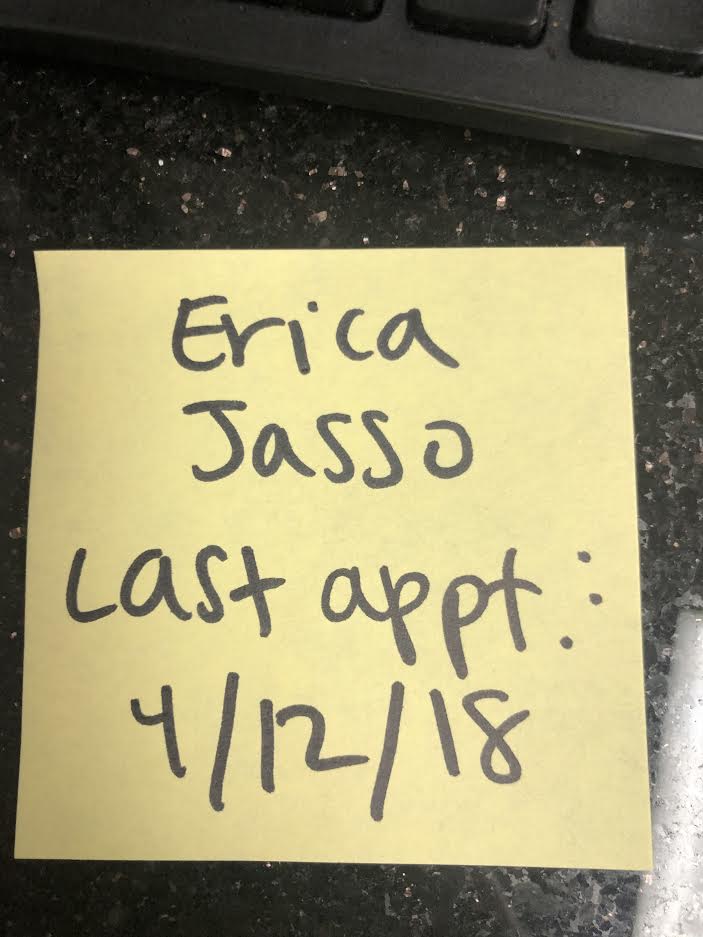 Erica
Jasso
Last appt.:
4/12/18